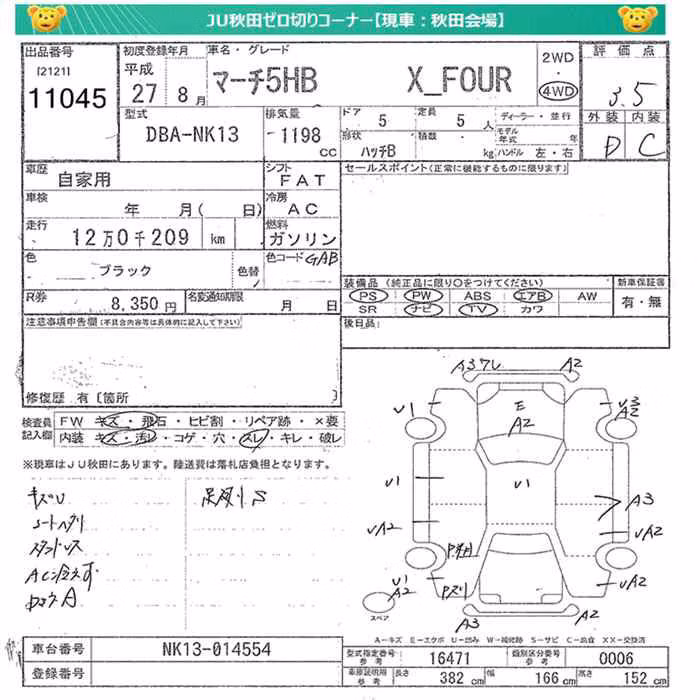 JU秋田ゼロ切りコーナー【現車：秋田会場】
出品番号
[2121]
11045
初度登録年月
平成
27 8 月
車名・グレード
マーチ5HB X_FOUR
2WD
4WD
評価点
3.5
外装 内装
D C
型式
DBA-NK13
排気量
1198
CC
ドア 5
定員 5 人
ディーラー・並行
形状 ハッチB
積数 kg
モデル年式 年
ハンドル 左・右
車歴 自家用
シフト FAT
セールスポイント(正常に機能するものに限ります)
車検 年 月( 日)
冷房 AC
走行 12万0千209 km
燃料 ガソリン
色 ブラック 色替
色コード GAB
装備品(純正品に限り○をつけてください)
新車保証書
PS PW ABS エアB AW
SR ナビ TV カワ
有・無
R券 8,350 円
名変通知期限 月 日
後日品:
注意事項申告欄(不具合内容等は具体的に記入して下さい)
修復歴 有〔箇所 〕
検査員記入欄
FW キズ・飛石・ヒビ割・リペア跡・×要
内装 キズ・汚レ・コゲ・穴・スレ・キレ・破レ
※現車はJU秋田にあります。陸送費は落札店負担となります。
キズU
シートヘタリ
スタッドレス
AC冷えず
足廻りS
A3 ワレ A2
U1 E A2 U3 A2
U1 U1 A3
UA2 UA2
U1 A2 UA2
スペア
A3 A2
A－キズ E－エクボ U－凹み W－補修跡 S－サビ C－腐食 XX－交換済
車台番号 NK13-014554
登録番号
型式指定番号 参考 16471
類別区分番号 参考 0006
車原証明 参考 長さ 382 cm 幅 166 cm 高さ 152 cm